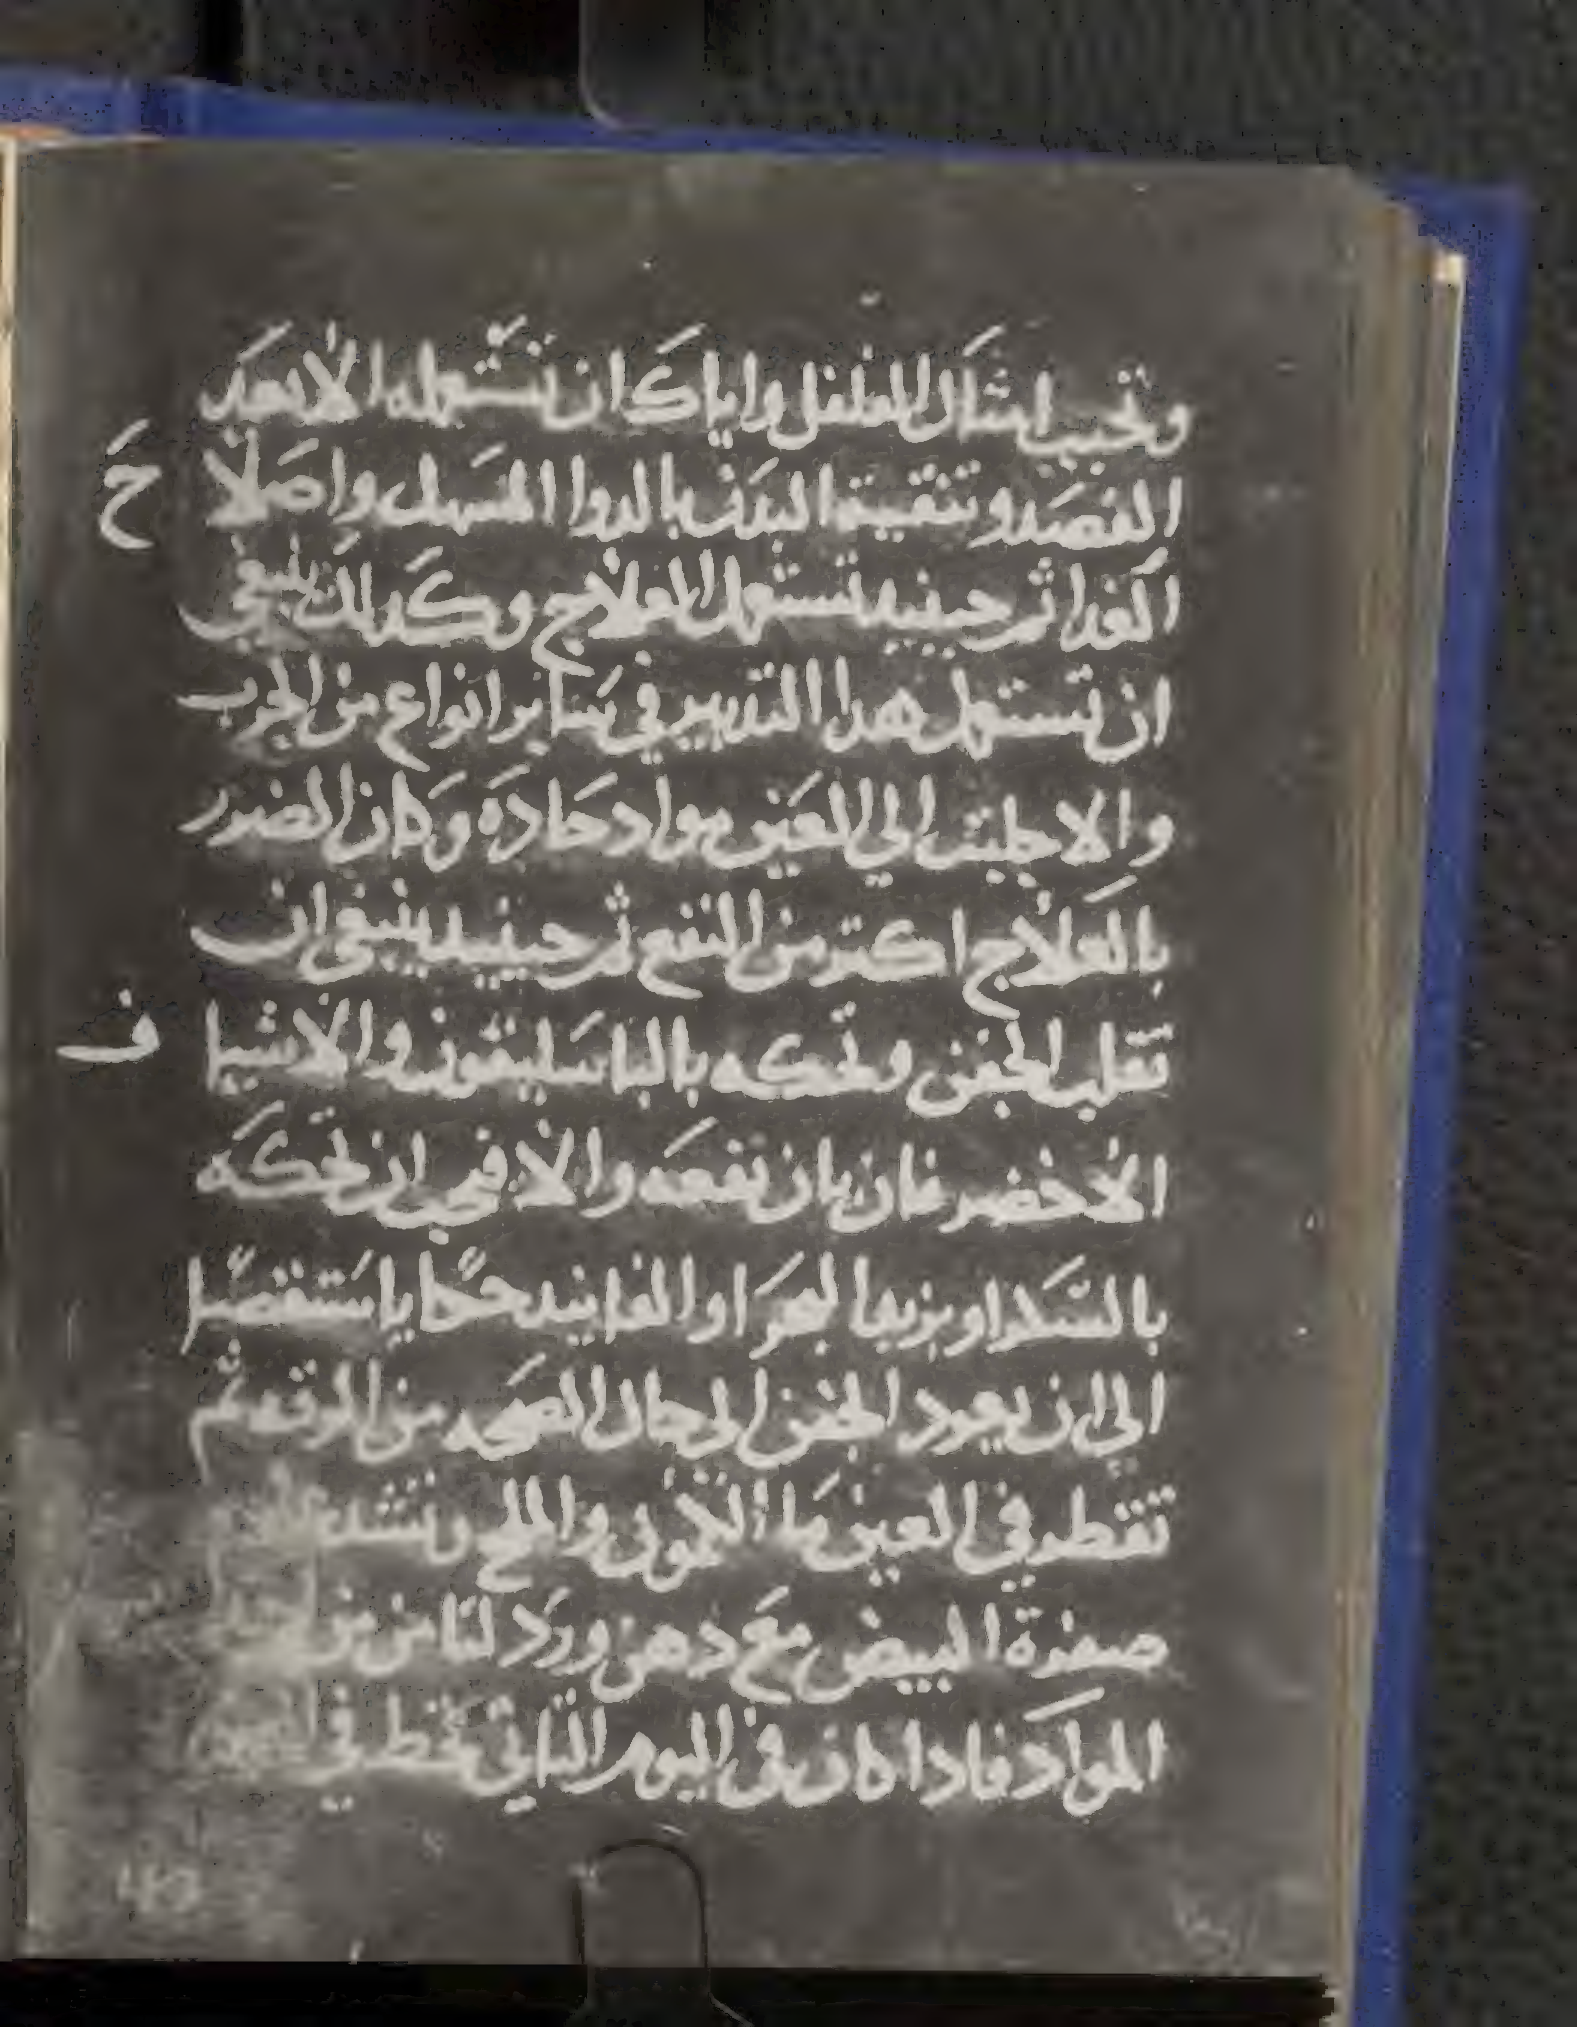 وتجيب امثال الطفل واياك ان تستعمله الا بعد
الفصد وتنقية البدن بالدوا المسهل واصلا
ح
الغدا ثم حينيد تستعمل العلاج وكدلك ينبغي
ان تستعمل هدا التدبير في ساير انواع من الجرب
والا جلبت الي العين مواد حاده وكان الضرر
بالعلاج اكتر من النفع ثم حينيد ينبغي ان
تقلب الجفن وتحكه بالباسليقون والاشيا
ف
الاخضر فان بان نفعه والا فيجب ان تحكه
بالسكر او بزبد البحر او الفانيد حكا يا مستقصا
الي ان يعود الجفن الي حال الصحه من الرقه ثم
تقطر في العين ما الكمون والملح وتشد
صفرة البيض مع دهن ورد لتامن من
المواد فادا كان في اليوم التاني تقطر في